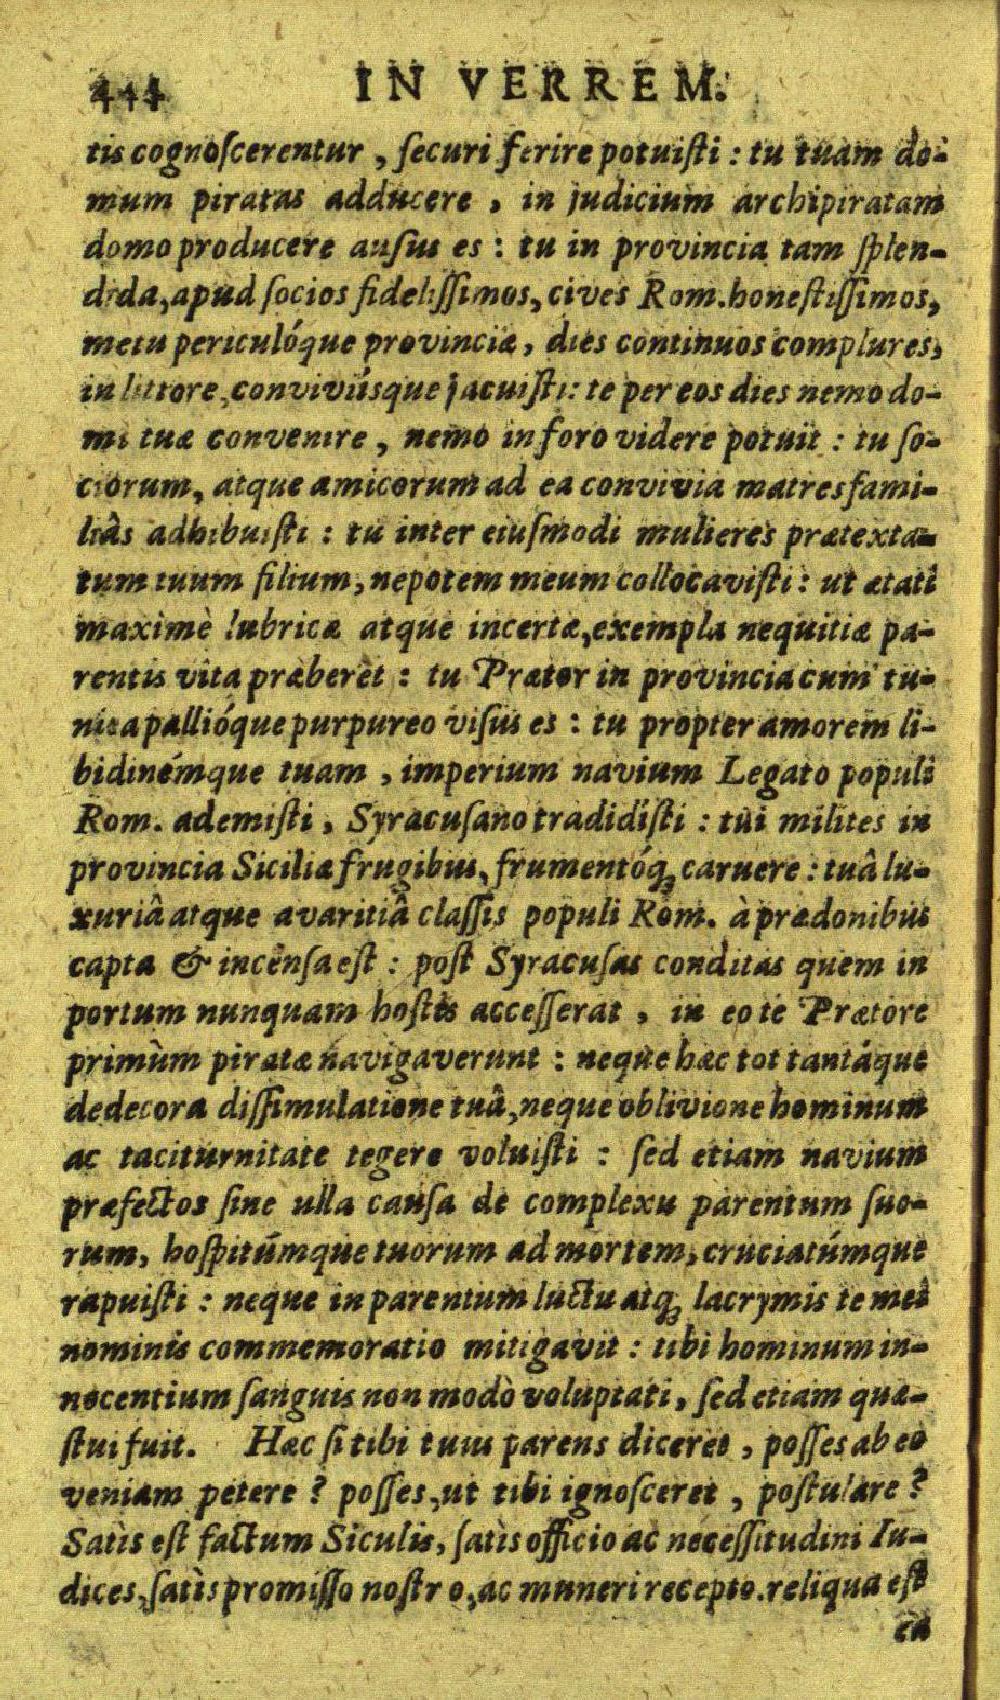 444 IN VERREM.
tis cognoſcerentur, ſecuri ferire potuiſti: tu tuam do-
mum piratas adducere, in judicium archipiratam
domo producere auſus es: tu in provincia tam ſplen-
dida, apud ſocios fideliſſimos, cives Rom. honeſtiſſimos,
metu periculóque provinciæ, dies continuos complures,
in littore, conviviíſque jacuiſti: te per eos dies nemo do-
mi tuæ convenire, nemo in foro videre potuit: tu ſo-
ciorum, atque amicorum ad ea convivia matresfami-
liâs adhibuiſti: tu inter eiuſmodi mulieres prætexta-
tum tuum filium, nepotem meum collocaviſti: ut ætati
maximè lubricæ atque incertæ, exempla nequitiæ pa-
rentis vita præberet: tu Prætor in provincia cum tu-
nica pallióque purpureo viſus es: tu propter amorem li-
bidinémque tuam, imperium navium Legato populi
Rom. ademiſti, Syracuſano tradidiſti: tui milites in
provincia Siciliæ frugibus, frumentóq; caruere: tuâ lu-
xuriâ atque avaritiâ claſſis populi Rom. à prædonibus
capta & incenſa eſt: poſt Syracuſas conditas quem in
portum nunquam hoſtis acceſſerat, in eo te Prætore
primùm piratæ navigaverunt: neque hæc tot tantáque
dedecora diſſimulatione tuâ, neque oblivione hominum
ac taciturnitate tegere voluiſti: ſed etiam navium
præfectos ſine ulla cauſa de complexu parentum ſuo-
rum, hoſpitúmque tuorum ad mortem, cruciatúmque
rapuiſti: neque in parentum luctu atq; lacrymis te mei
nominis commemoratio mitigavit: tibi hominum in-
nocentium ſanguis non modò voluptati, ſed etiam quæ-
ſtui fuit. Hæc ſi tibi tuus parens diceret, poſſes ab eo
veniam petere? poſſes, ut tibi ignoſceret, poſtulare?
Satìs eſt factum Siculis, ſatìs officio ac neceſſitudini Iu-
dices, ſatìs promiſſo noſtro, ac muneri recepto. reliqua eſt
ea